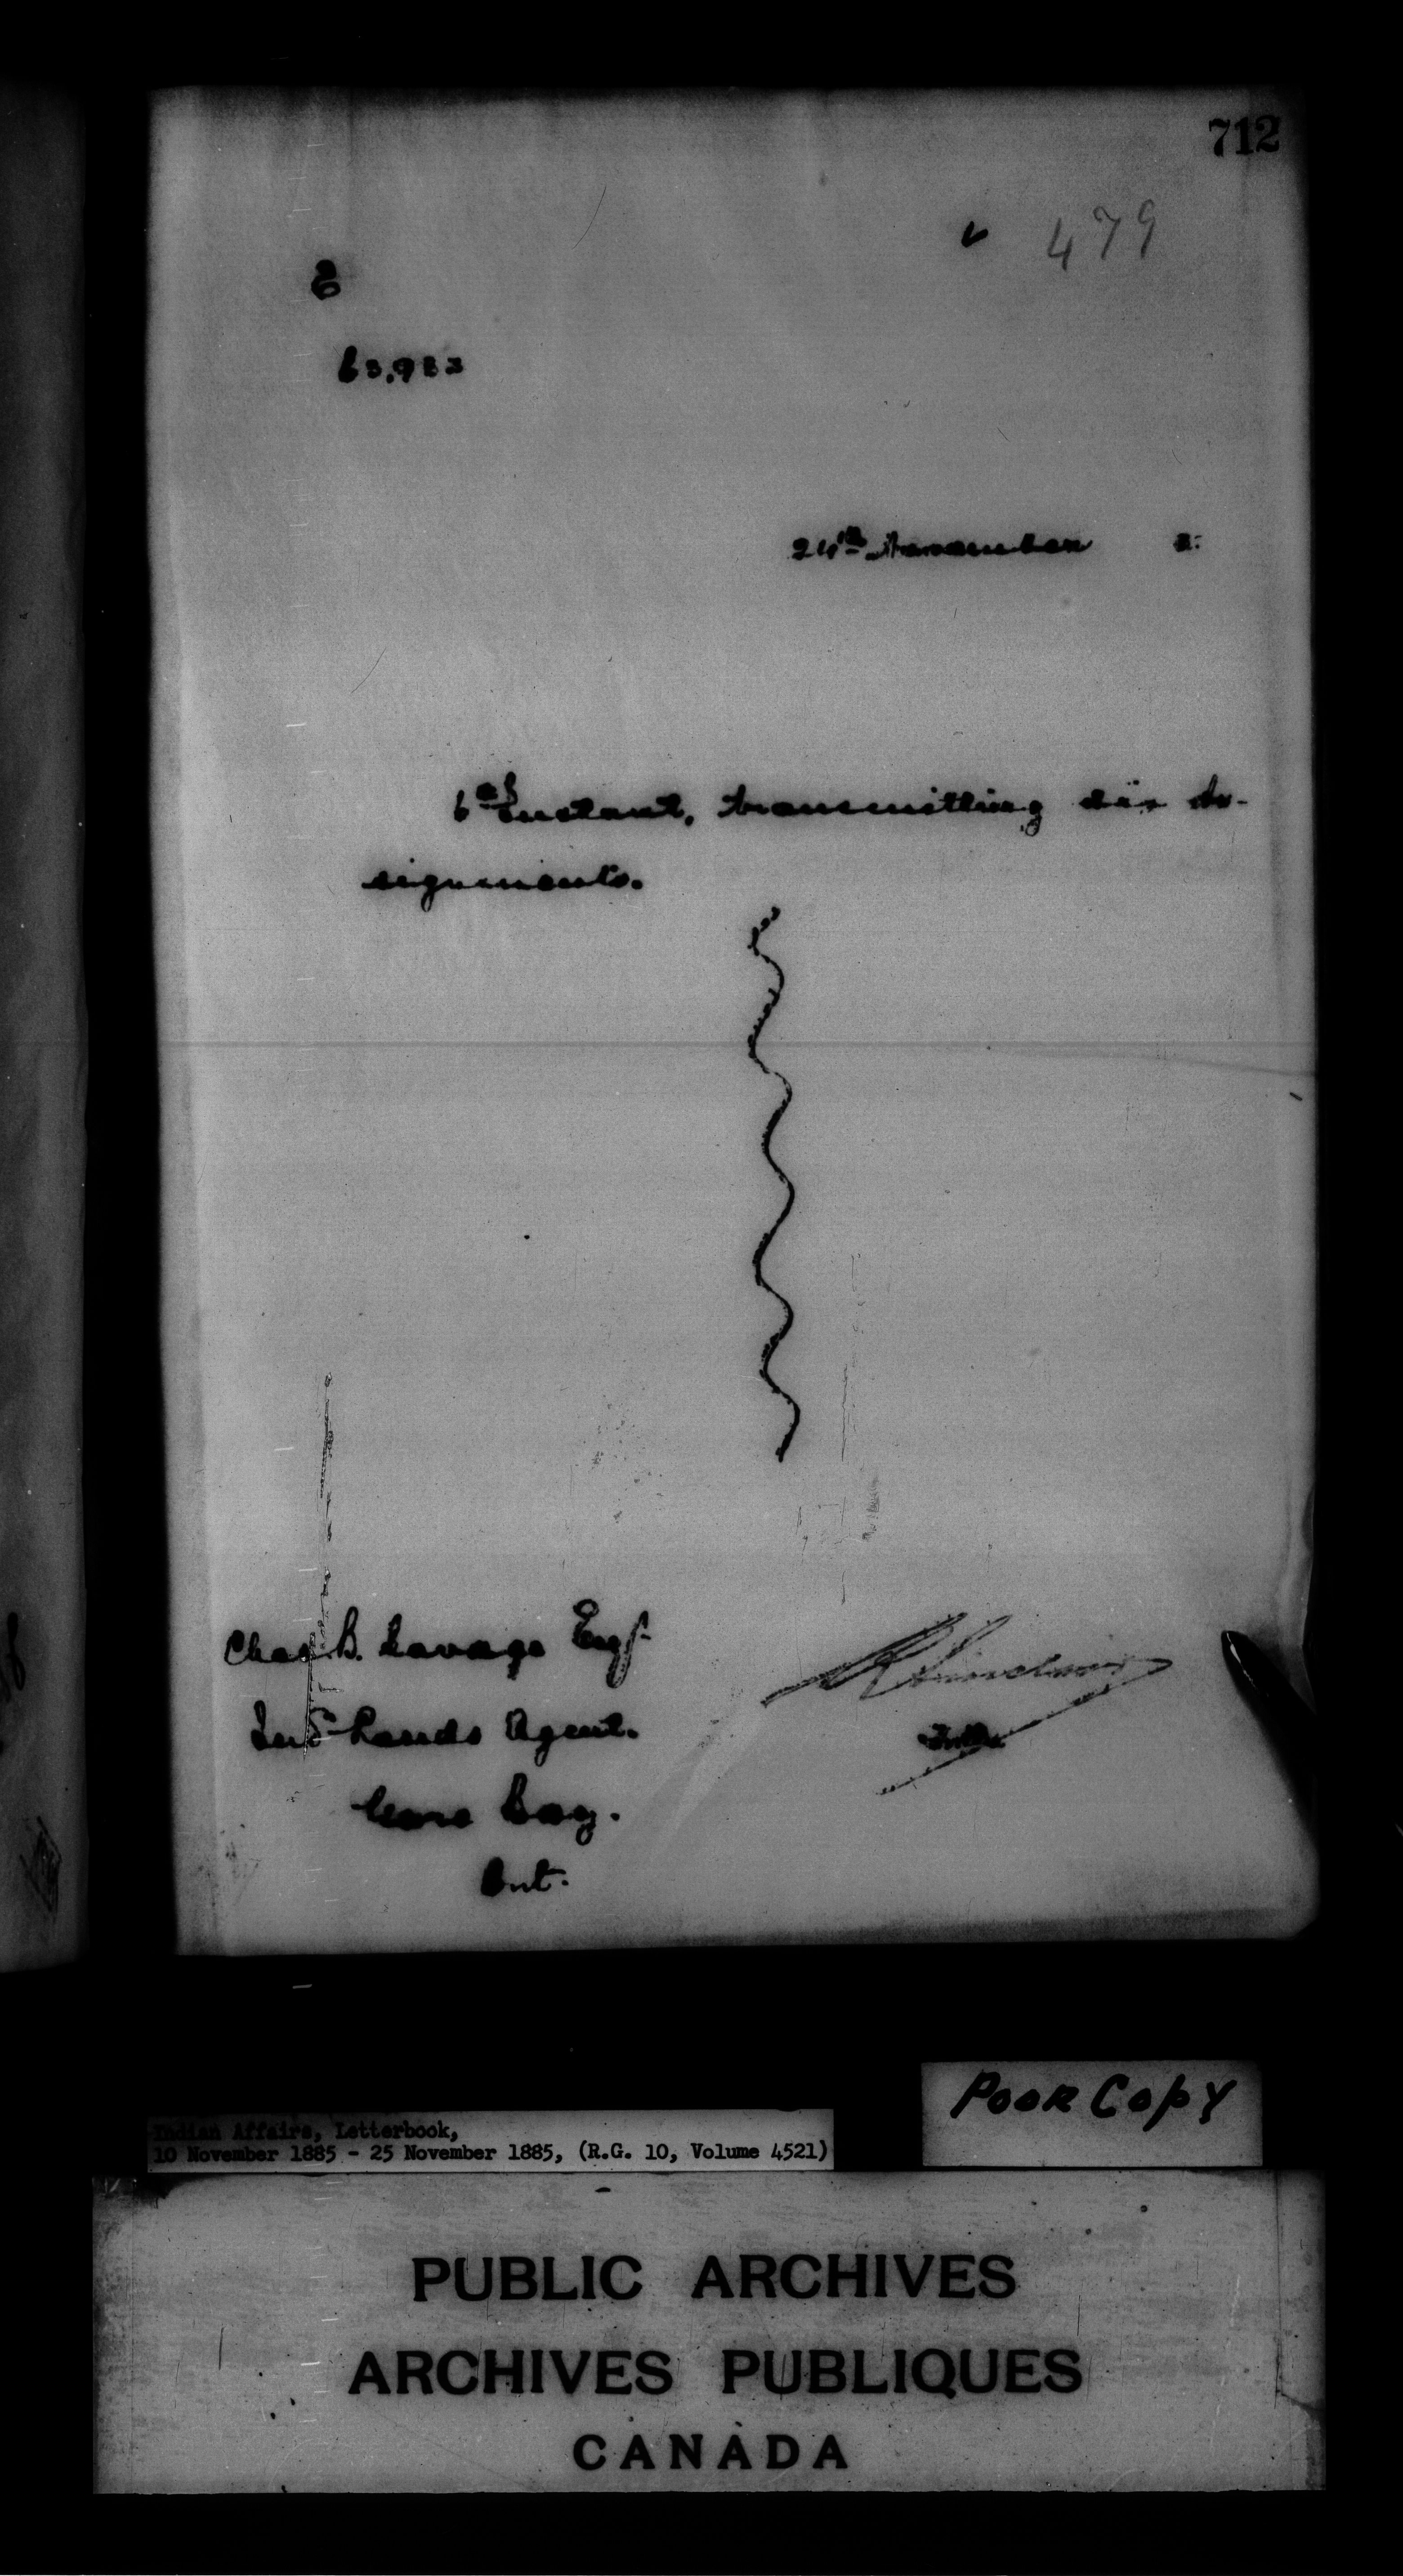 712
479
63,982
24th November 5.
6th Instant, transmitting six As-
signments.
Chas. B. Savage Esqr.
Ind Lands Agent.
Gore Bay.
Ont.
R Sinclair
Poor Copy
Indian Affairs, Letterbook,
10 November 1885 - 25 November 1885, (R.G. 10, Volume 4521)
PUBLIC ARCHIVES
ARCHIVES PUBLIQUES
CANADA